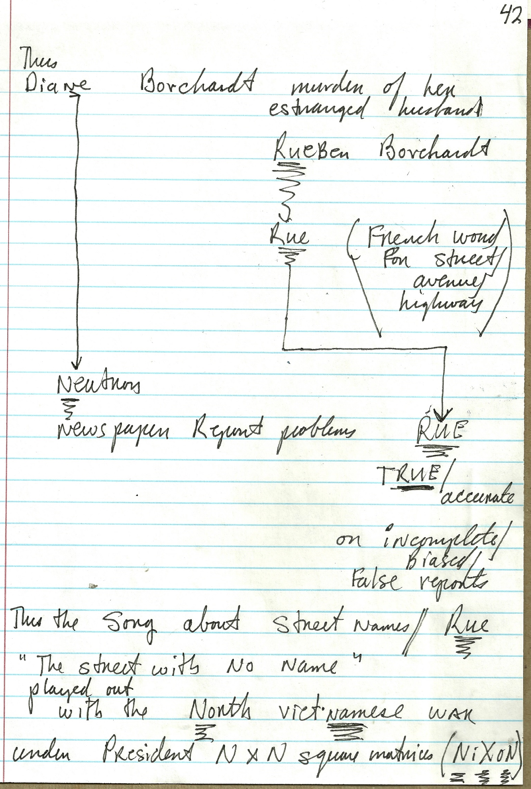 42
Thus
Diane Borchardt murder of her
estranged husband
RueBen Borchardt
Rue (French word
for street/
avenue/
highway)
Neutrons
Newspaper Report problems RUE
TRUE/
accurate
on incomplete/
Biased/
False reports
Thus the Song about street names// Rue
"The street with No Name"
played out
with the North vietnamese war
under President N x N square matrices (NiXoN)